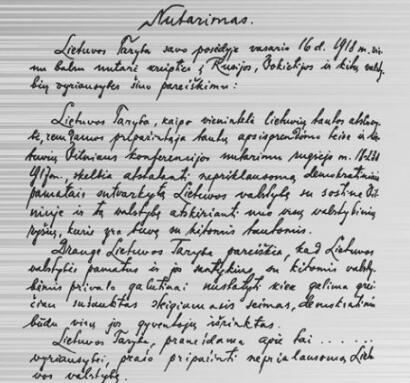 Nutarimas.
Lietuvos Taryba savo posėdyje vasario 16 d. 1918 m. vie-
nu balsu nutarė kreiptis į Rusijos, Vokietijos ir kitų valsty-
bių vyriausybes šiuo pareiškimu:
Lietuvos Taryba, kaipo vienintelė lietuvių tautos atstovy-
bė, remdamos pripažintąja tautų apsisprendimo teise ir lie-
tuvių Vilniaus konferencijos nutarimu rugsėjo m. 18-23 d.
1917 m., skelbia atstatanti nepriklausomą, demokratiniais
pamatais sutvarkytą Lietuvos valstybę su sostine Vil-
niuje ir tą valstybę atskirianti nuo visų valstybinių
ryšių, kurie yra buvę su kitomis tautomis.
Drauge Lietuvos Taryba pareiškia, kad Lietuvos
valstybės pamatus ir jos santykius su kitomis valsty-
bėmis privalo galutinai nustatyti kiek galima grei-
čiau sušauktas steigiamasis seimas, demokratiniu
būdu visų jos gyventojų išrinktas.
Lietuvos Taryba, pranešdama apie tai . . . . . .
vyriausybei, prašo pripažinti nepriklausomą Lietu-
vos valstybę.